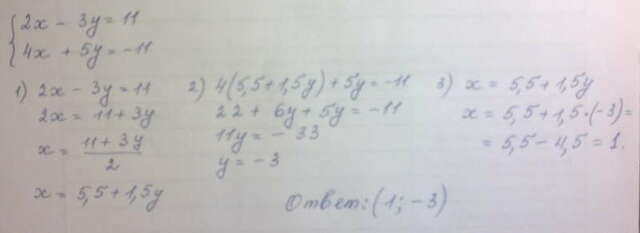 {2x - 3y = 11
4x + 5y = -11
1) 2x - 3y = 11
2x = 11 + 3y
x = (11 + 3y)/2
x = 5,5 + 1,5y
2) 4(5,5 + 1,5y) + 5y = -11
22 + 6y + 5y = -11
11y = -33
y = -3
3) x = 5,5 + 1,5y
x = 5,5 + 1,5·(-3) =
= 5,5 - 4,5 = 1.
Ответ: (1; -3)